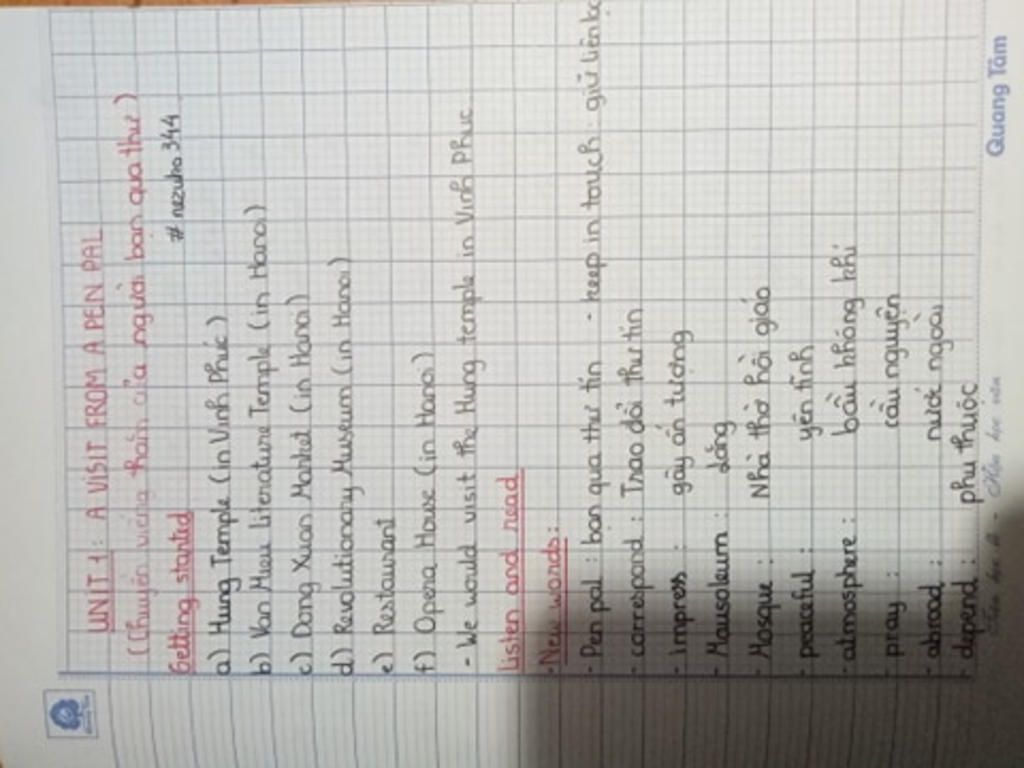 UNIT 1: A VISIT FROM A PEN PAL
(Chuyến viếng thăm của người bạn qua thư)
# nezuho 344
Getting started
a) Hung Temple (in Vinh Phúc)
b) Van Mieu Literature Temple (in Hanoi)
c) Dong Xuan Market (in Hanoi)
d) Revolutionary Museum (in Hanoi)
e) Restaurant
f) Opera House (in Hanoi)
- We would visit the Hung temple in Vinh Phuc
Listen and read
- New words:
- Pen pal : bạn qua thư tín - keep in touch : giữ liên
- correspond : Trao đổi thư tín
- Impress : gây ấn tượng
- Mausoleum : lăng
- Mosque : Nhà thờ hồi giáo
- peaceful : yên tĩnh
- atmosphere : bầu không khí
- pray : cầu nguyện
- abroad : nước ngoài
- depend : phụ thuộc
Quang Tâm